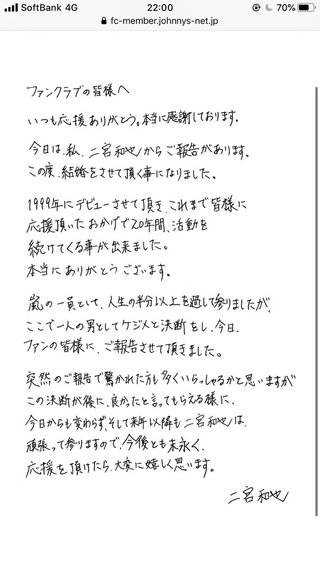 SoftBank 4G 22:00 70%
fc-member.johnnys-net.jp
ファンクラブの皆様へ
いつも応援ありがとう。本当に感謝しております。
今日は、私、二宮和也からご報告があります。
この度、結婚をさせて頂く事になりました。
1999年にデビューさせて頂き、これまで皆様に
応援頂いたおかげで20年間、活動を
続けてくる事が出来ました。
本当にありがとうございます。
嵐の一員として、人生の半分以上を過して参りましたが、
ここで一人の男としてケジメと決断をし、今日、
ファンの皆様に、ご報告させて頂きました。
突然のご報告で驚かれた方も多くいらっしゃるかと思いますが
この決断が後に、良かったと言ってもらえる様に、
今日からも変わらず、そして来年以降も二宮和也は、
頑張って参りますので、今後とも末永く、
応援を頂けたら、大変に嬉しく思います。
二宮和也